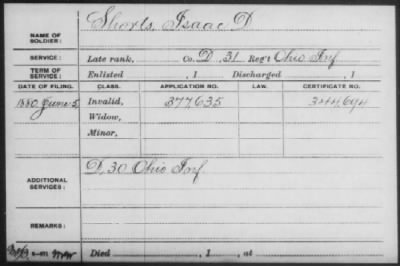 NAME OF SOLDIER: Shorts, Isaac D
SERVICE: Late rank, Co. D, 31 Reg't Ohio Inf.
TERM OF SERVICE: Enlisted , 1 Discharged , 1
DATE OF FILING. CLASS. APPLICATION NO. LAW. CERTIFICATE NO.
1880 June 5 Invalid, 377,635 344,694
Widow,
Minor,
ADDITIONAL SERVICES: D, 30 Ohio Inf.
REMARKS:
Died , 1 , at